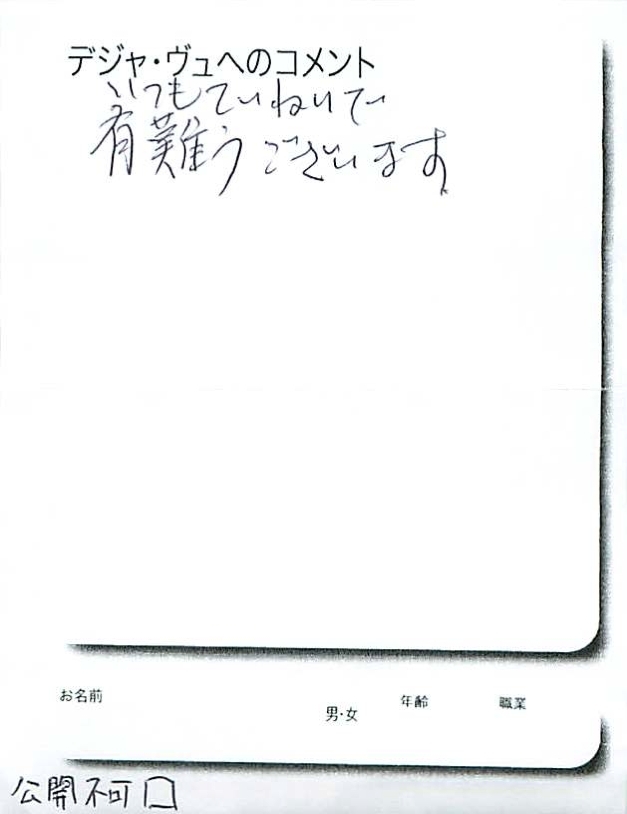 デジャ・ヴュへのコメント
いつもていねいで
有難うございます
お名前
男・女
年齢
職業
公開不可□